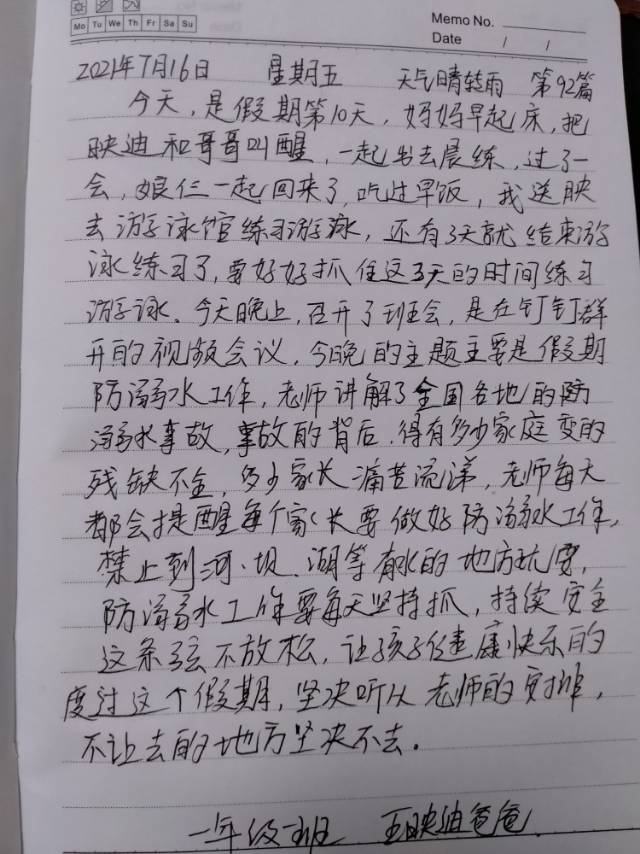 Mo Tu We Th Fr Sa Su
Memo No.
Date / /
2021年7月16日 星期五 天气晴转雨 第92篇
今天,是假期第10天,妈妈早起床,把
映迪和哥哥叫醒,一起出去晨练,过了一
会,娘仨一起回来了,吃过早饭,我送映
去游泳馆练习游泳,还有3天就结束游
泳练习了,要好好抓住这3天的时间练习
游泳。今天晚上,召开了班会,是在钉钉群
开的视频会议,今晚的主题主要是假期
防溺水工作,老师讲解了全国各地的防
溺水事故,事故的背后,得有多少家庭变的
残缺不全,多少家长痛苦流涕,老师每天
都会提醒每个家长要做好防溺水工作,
禁止到河、坝、湖等有水的地方玩耍,
防溺水工作要每天坚持抓,持续安全
这条弦不放松,让孩子健康快乐的
度过这个假期,坚决听从老师的安排,
不让去的地方坚决不去。
一年级班 王映迪爸爸